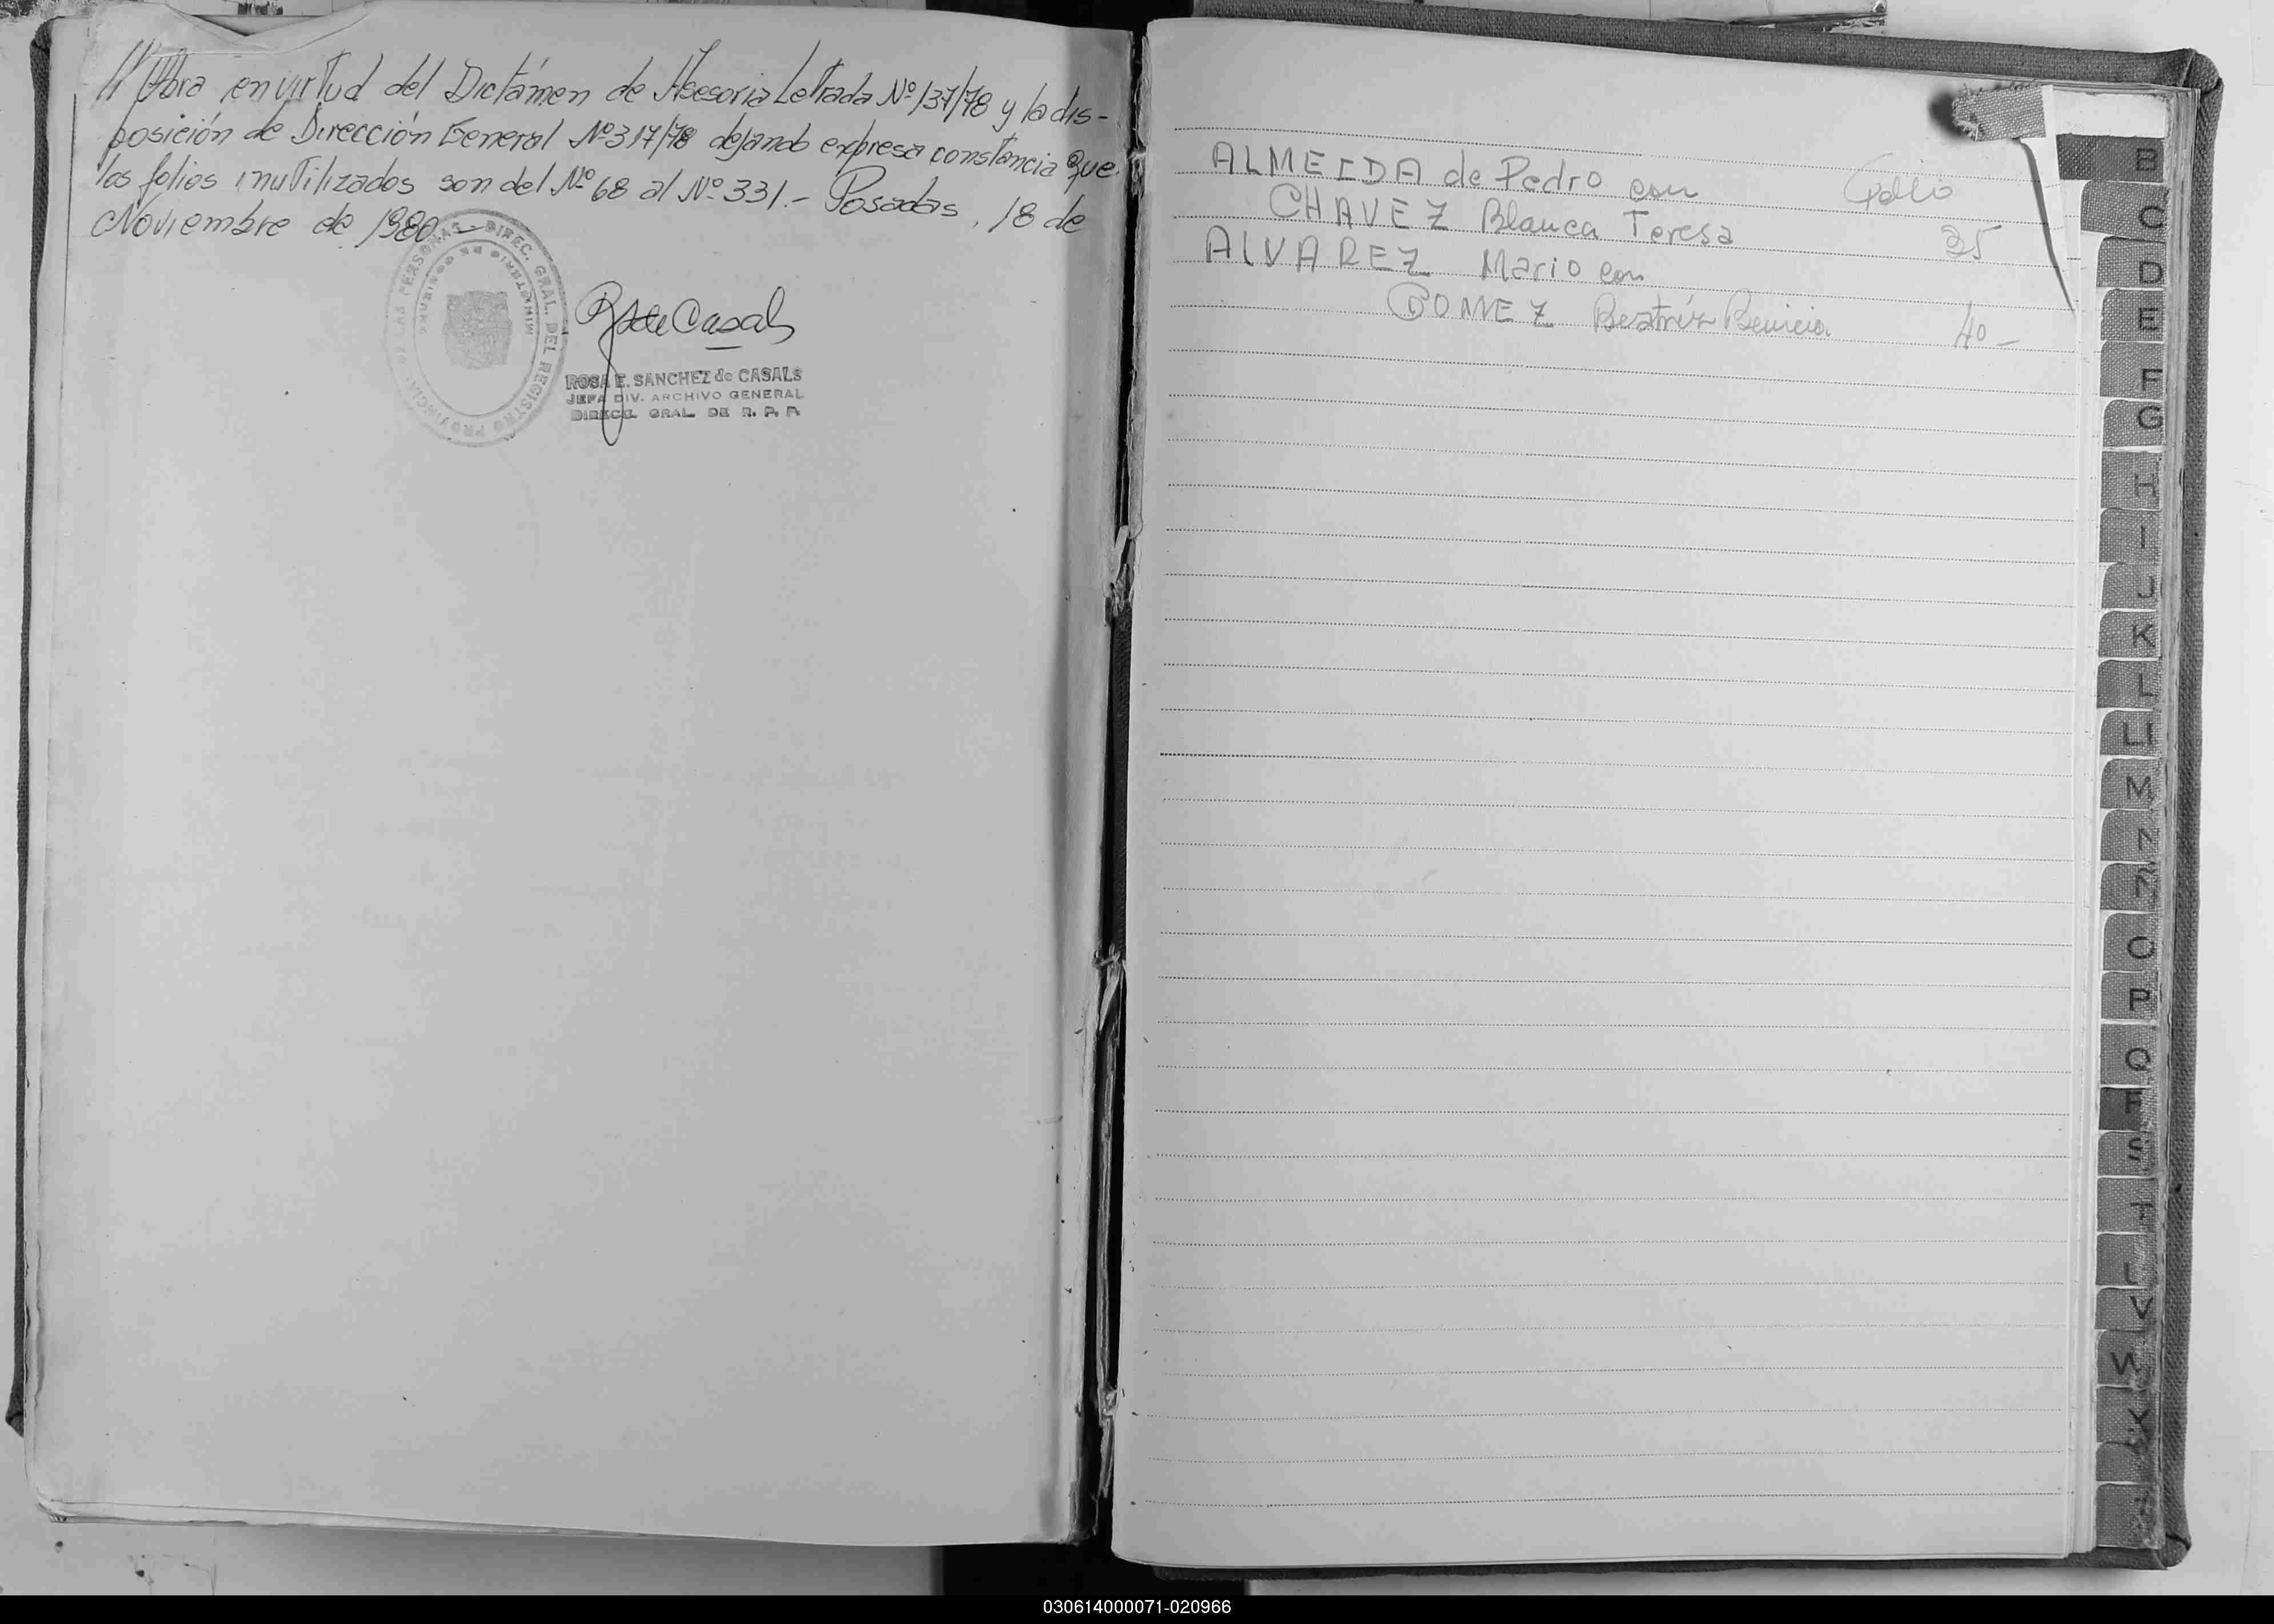 // Obra en virtud del Dictámen de Asesoria Letrada Nº 137/78 y la dis-
posición de Dirección General Nº 317/78 dejando expresa constancia que
los folios inutilizados son del Nº 68 al Nº 331.- Posadas, 18 de
Noviembre de 1980.-
DIREC. GRAL. DEL REGISTRO PROVINCIAL DE LAS PERSONAS
MINISTERIO DE GOBIERNO
ROSA E. SANCHEZ de CASALS
JEFA DIV. ARCHIVO GENERAL
DIRECC. GRAL. DE R. P. P.
Folio
ALMEIDA de Pedro con
CHAVEZ Blanca Teresa 35
ALVAREZ Mario con
GOMEZ Beatríz Benicia 40-
B
C
D
E
F
G
H
I
J
K
L
LL
M
N
Ñ
O
P
Q
R
S
T
V
W
X
030614000071-020966